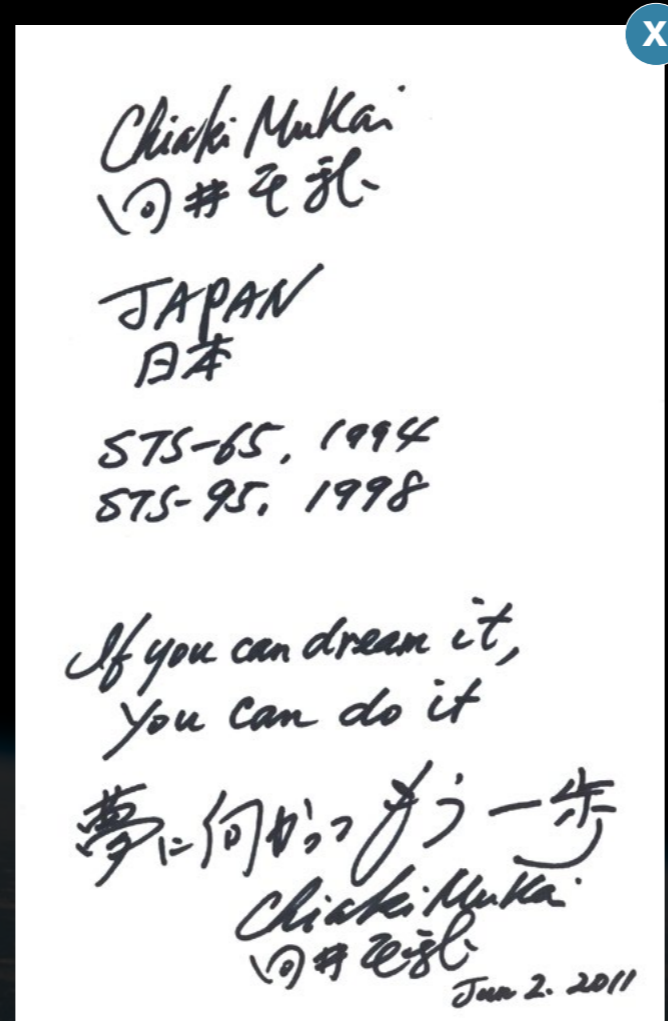 X
Chiaki Mukai
向井千秋
JAPAN
日本
STS-65, 1994
STS-95, 1998
If you can dream it,
you can do it
夢に向かって もう一歩
Chiaki Mukai
向井千秋
Jun 2. 2011